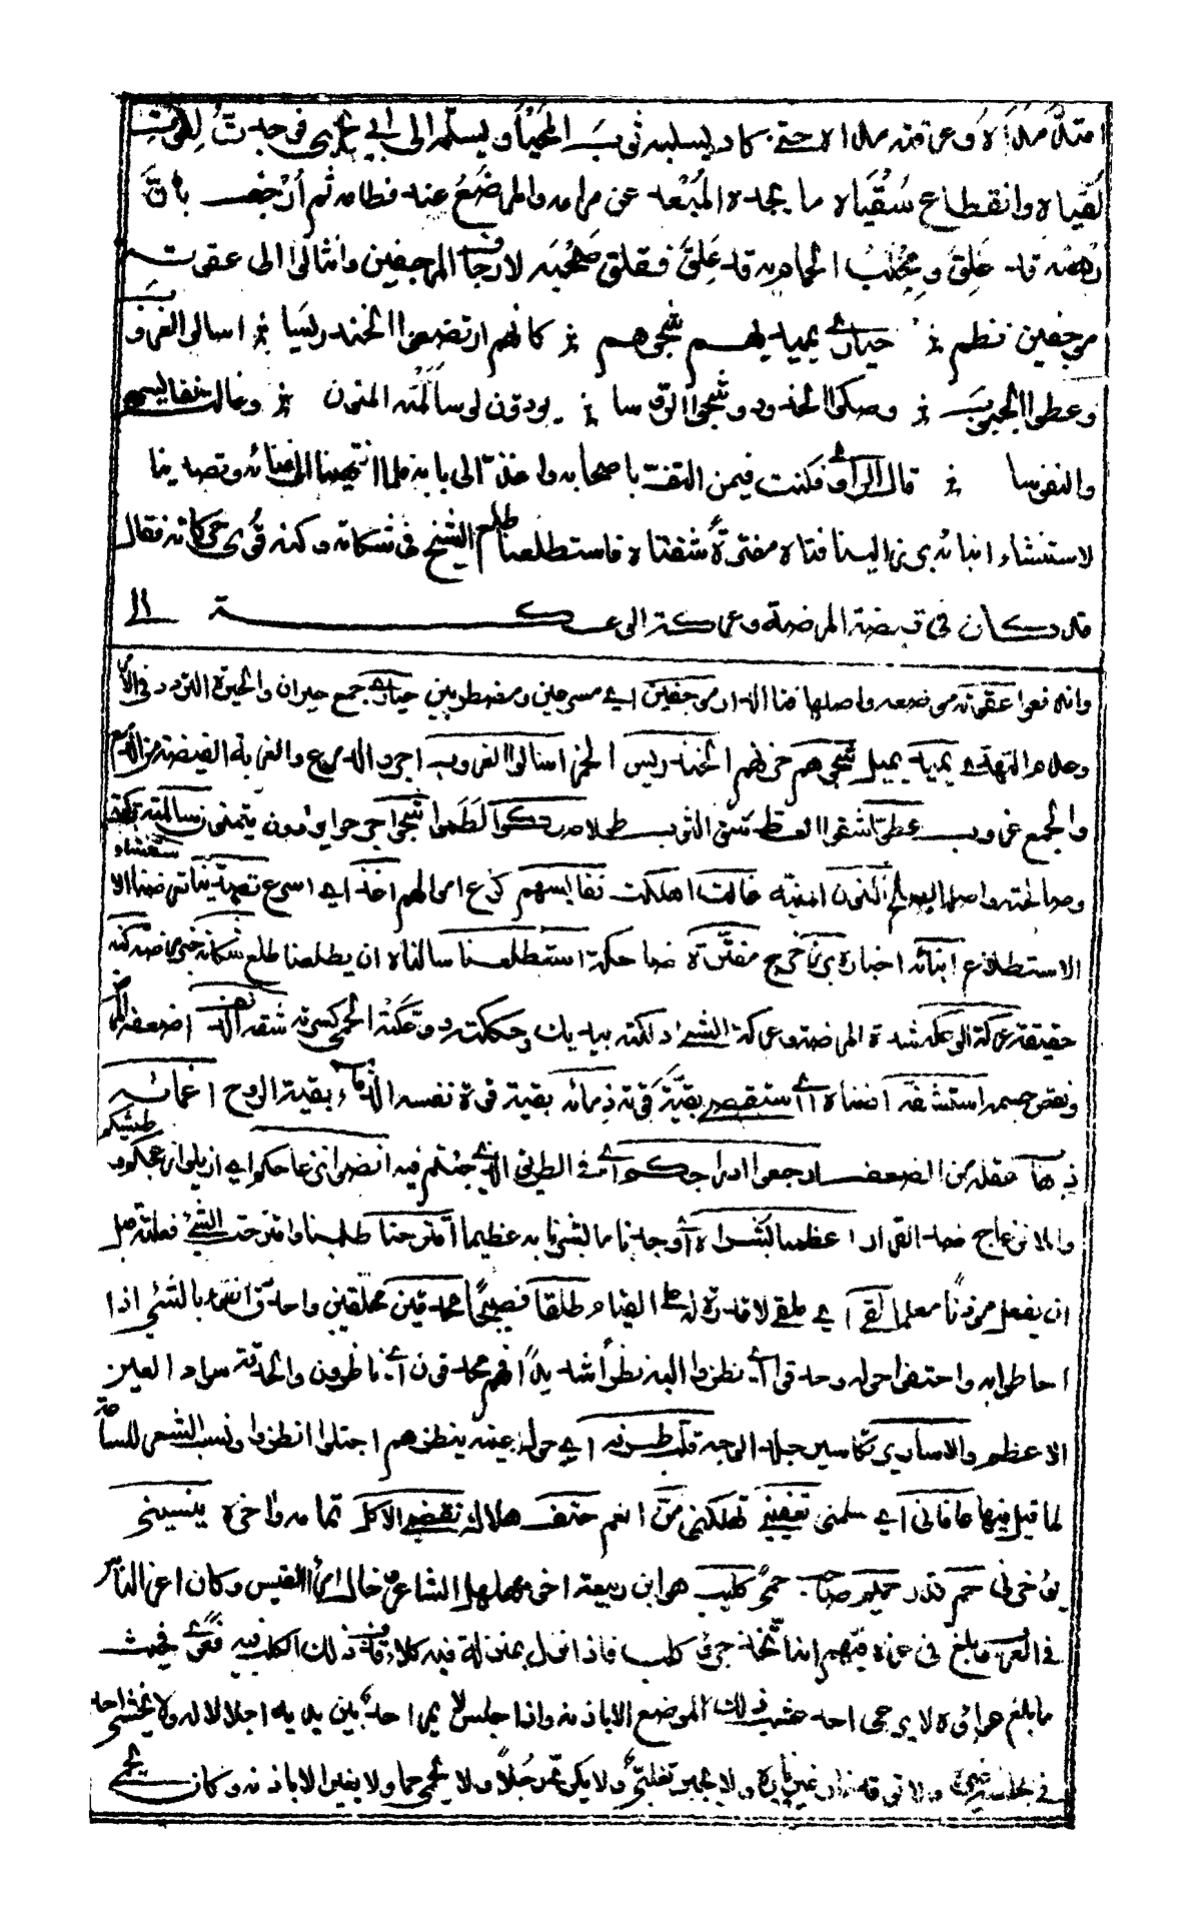 امتدّ مداه وعرقته مداه حتى كاد يسلبه ثوب المحيا ويسلمه الى ابي يحيى فوجدت لفوت
لقياه وانقطاع سقياه ما يجده المبعد عن مرامه والمرضع عند فطامه ثم ارجف بان
رهنه قد غلق ومخلب الحمام به قد علق فقلق صحبه لارجاف المرجفين وانثالوا الى عقوته
مرجفين نظم حيارى يميد بهم شجوهم كانهم ارتضعوا الخندريسا اسالوا الغروب
وعطوا الجيوب وصكوا الخدود وشجوا الرؤسا يودون لو سالمته المنون وغالت نفايسهم
والنفوسا قال الراوى فكنت فيمن التف باصحابه واغذ الى بابه فلما انتهينا الى فنائه وتصدينا
لاستنشاء انبائه برز الينا فتاه مفترة شفتاه فاستطلعناه طلع الشيخ فى شكاته وكنه قوى حركاته فقال
قد كان فى قبضة المرضة وعركة الوعكة الى
عقوته موضعه واصلها فنا الدار مرجفين اي مسرعين ومضطربين حيارى جمع حيران والحيرة التردد فى الامر
يميد يميل شجوهم حزنهم الخندريس الخمر اسالوا الغروب اجروا الدموع والغربة الفيضة من الدمع
والجمع غروب عطوا شقوا صكوا لطموا شجوا جرحوا يودون يتمنون سالمته
المنون المنية غالت اهلكت نفايسهم
الاستطلاع انبائه اخباره برز خرج مفترة ضاحكة استطلعناه سالناه ان يطلعنا طلع شكاته خبر مرضه كنه
حقيقة عركة الوعكة شدة المرض وعركت الشي دلكته بيديك وحككته ووعكته الحمى كسرته شفه الدنف اضعفه المرض
ونقص جسمه استشفه افناه اي استقصى بقية قوته ذمائه بقية قوة نفسه الذماء بقية الروح اغمائه
ذهاب عقله من الضعف ارجعوا ادراجكم اي فى الطريق الذي جئتم فيه انضوا انزعاجكم اي ازيلوا انزعاجكم
والانزعاج ضد القرار اعظمنا بشراه اي وجدنا ما بشرنا به عظيما اقترحنا طلبنا واقترحت الشئ فعلته قبل
ان يفعل موذنا معلما لقى اي ملقى لا قدرة له على القيام طلقا فصيحا محدقين محلقين واحدق القوم بالشئ اذا
احاطوا به واحتفوا حوله وحدقوا اي نظروا اليه نظرا شديدا فهم محدقون اي ناظرون والحدقة سواد العين
الاعظم والاسارير تكاسير جلد الوجه قلب طرفه اي حول عينه ينظرهم اجتلوا انظروا ونسب الشعر للساعة
لما قيل فيها عافاني اي سلمني تعفيني تهلكني منّ انعم حتف هلاك تقضي الاكل تمامه واخره ينسيني
يؤخرني حم قدر حميم صاحب حمى كليب هو ابن ربيعة اخو مهلهل الشاعر خال امرأ القيس وكان اعز الناس
فى العرب فبلغ فى عزه فيهم انه اتخذ جرو كلب فاذا نزل بمنزلة فيه كلاء قذف ذلك الكلب فيه فعوى فحيث
ما بلغ عواؤه لا يرعى احد عشب ذلك الموضع الا باذنه واذا جلس لا يمر احد بين يديه اجلالا له ولا يحتبى احد
فى مجلسه غيره ولا توقد نار غير ناره ولا يجير تغلبي ولا بكري رجلا ولا يحمى حما ولا يغير الا باذنه وكان يحمى